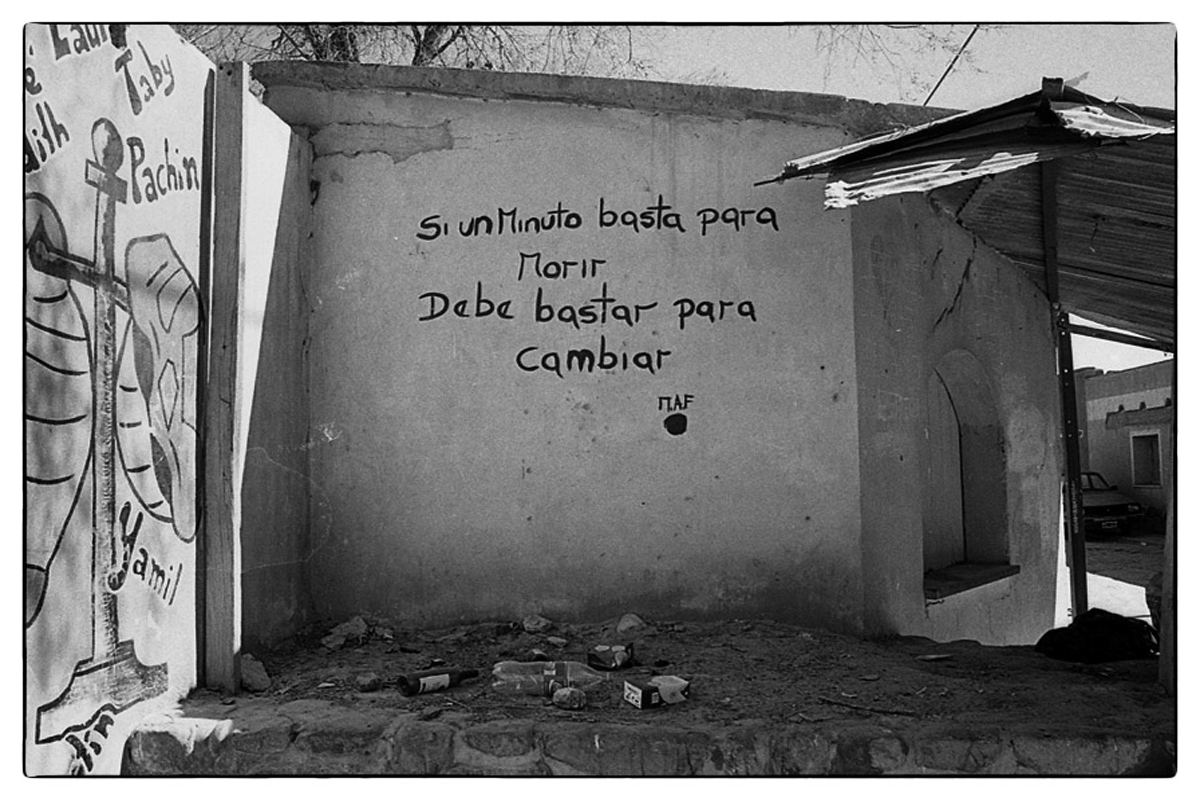 Taby
Pachin
Yamil
Si un Minuto basta para
Morir
Debe bastar para
cambiar
M.A.F